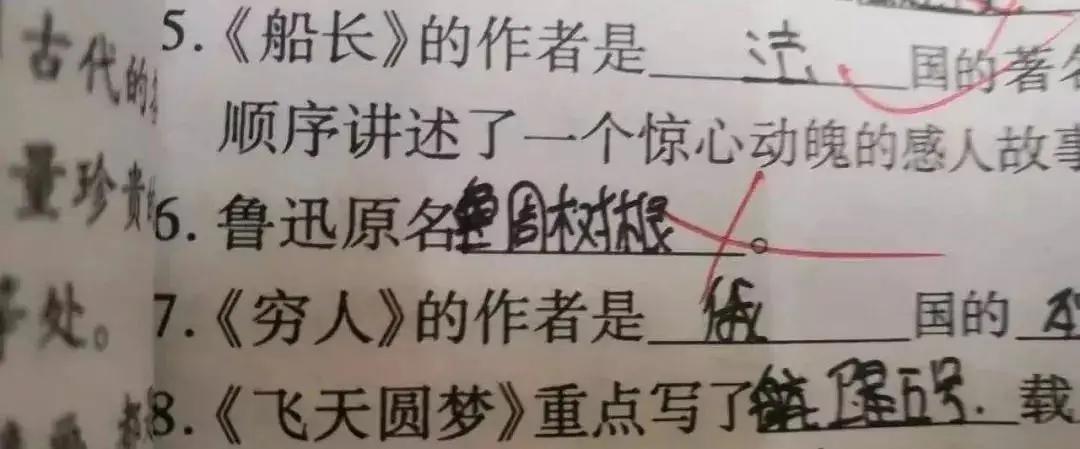 古代的
5.《船长》的作者是 法 国的著名
顺序讲述了一个惊心动魄的感人故事
量珍贵
6. 鲁迅原名 周树根 。
处。
7.《穷人》的作者是 俄 国的
8.《飞天圆梦》重点写了 五号. 载